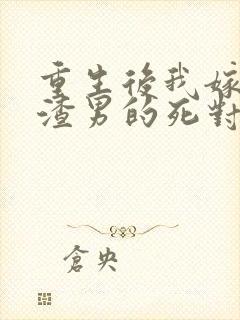 重生後我嫁
渣男的死對
倉央